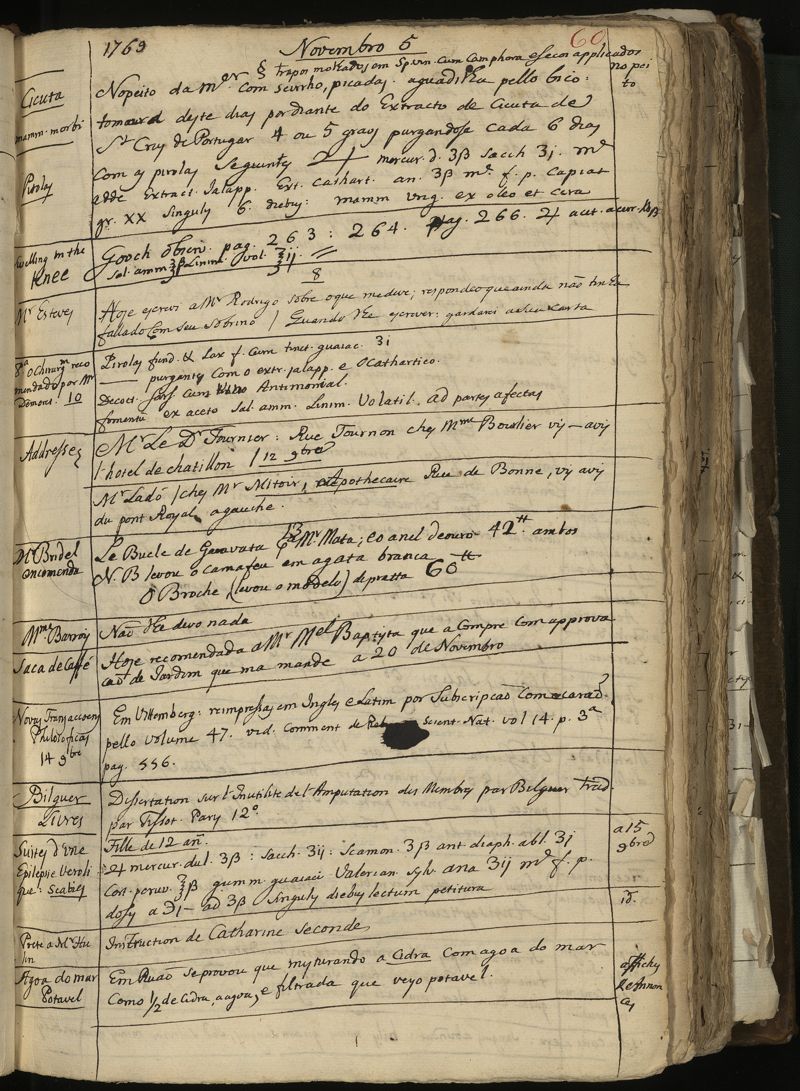 1769
Novembro 5
60
§ trapos molhados em Sp. vin. cum Camphora e secos applicados no peito
Cicuta
mamm. morbi
No peito da m.er com scirrho, picadas. aguadilha pello bico:
tomara deste dias por diante do Extracto de Cicuta de
S.ta Cruz de Portugal 4 ou 5 graos purgandose cada 6 dias
Pirolas
Com as pirolas seguintes ♃ mercur. d. ʒβ Sacch ʒj. m.e
adde Extract. Jalapp. Ext. Cathart. an. ʒβ m.e f. p. Capiat
gr. XX singulis 6. diebus: mamm ung. ex oleo et cera
Swelling in the
Knee
Gooch observ. pag. 263: 264. pag. 266. ♃ acet. acerr. lbβ
Sal. amm ℥β Linim. vol. ℥ij.
8
Mr Esteves
Hoje escrevi a Mr Rodrigo sobre o que me deve; respondeo que ainda não tinha
fallado com seu sobrino / Quando lhe escrever: gardarei a seu carta
8.a o Chirurg.m reco
mendado por Mr
Demons: 10
Pirolas fund. & Lax f. Cum tinct. guaiac. ʒi
—— purgantes com o extr. jalapp. e o Cathartico.
Decoct. sars Cum Antimonial.
fomentu ex aceto Sal. amm. Linim. Volatil. ad partes afectas
Addresses
Mr Le Dr Tournier: Rue Tournon ches Mme Bourlier vis—avis
l'hotel de chatillon / 12 9bre
Mr Ladó / ches Mr Mitoir, Apothecaire Rue de Bonne, vis avis
du pont Royal a gauche.
Mr Bridel
encomenda
Le Bucle de Gravata 13 Mr Mata; e o anel de ouro 42tt. ambos
N.B levou o camafeu em agata branca
O Broche (levou o modelo) de pratta 60tt
Mme Barrois
Não lhe devo nada
Saca de Caffé
Hoje recomendada a Mr Mel Baptysta que a compre com approva
çaõ de Jardim que ma mande a 20 de Novembro
Novas Transacçoens
Philosoficas
14 9bre
Em Vittemberg: reimpressas em Ingles e Latim por Subscripcaõ
pello volume 47. vid. Comment de scient. Nat. vol 14. p. 3a
pag. 556.
Bilguer
Livres
Dissertation sur l'Inutilité de l'Amputation des Membres par Bilguer trad.
par Tissot. Parys 12°.
Suites d'une
Epilepsie Veroli
que: Scabies
Fille de 12 an.
♃ mercur. dul. ʒβ: Sacch. ʒij: Scamon. ʒβ ant diaph. abl. ʒj
Cort. peruv. ℥β gumm. guaiaci Valerian. sylv. ana ʒij m.e f. p.
dosys a ℈j — ad ʒβ singulis diebus lectum petitura
a 15
9bre
id.
Preté a Mr Hu
lin
Instruction de Catharine Seconde
Agoa do mar
Potavel
Em Ruão se provou que mysturando a Cidra com agoa do mar
Como 1/2 de Cidra, a agoa, e filtrada que veyo potavel.
affiches
& Annon
ces